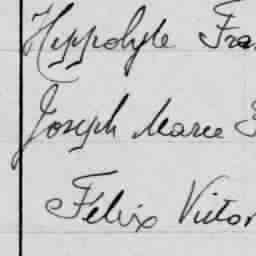 Hyppolyte Fra
Joseph Marie
Félix Victor